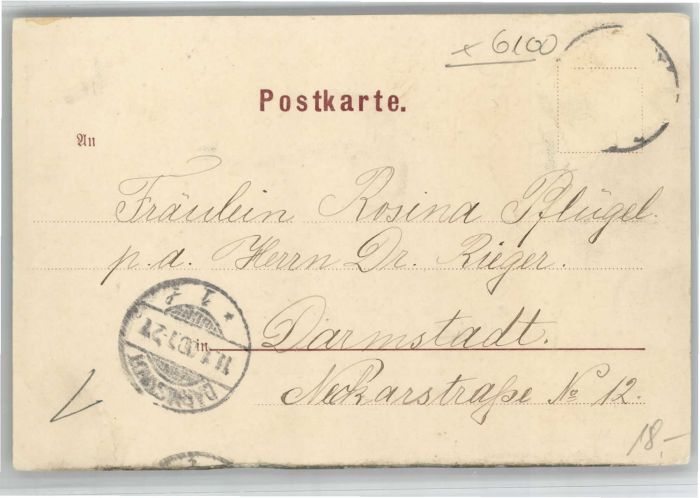 x 6100
Postkarte.
An
Fräulein Rosina Pflügel.
p. a. Herrn Dr. Rieger.
in Darmstadt.
Neckarstraße No 12.
DARMSTADT
18.-